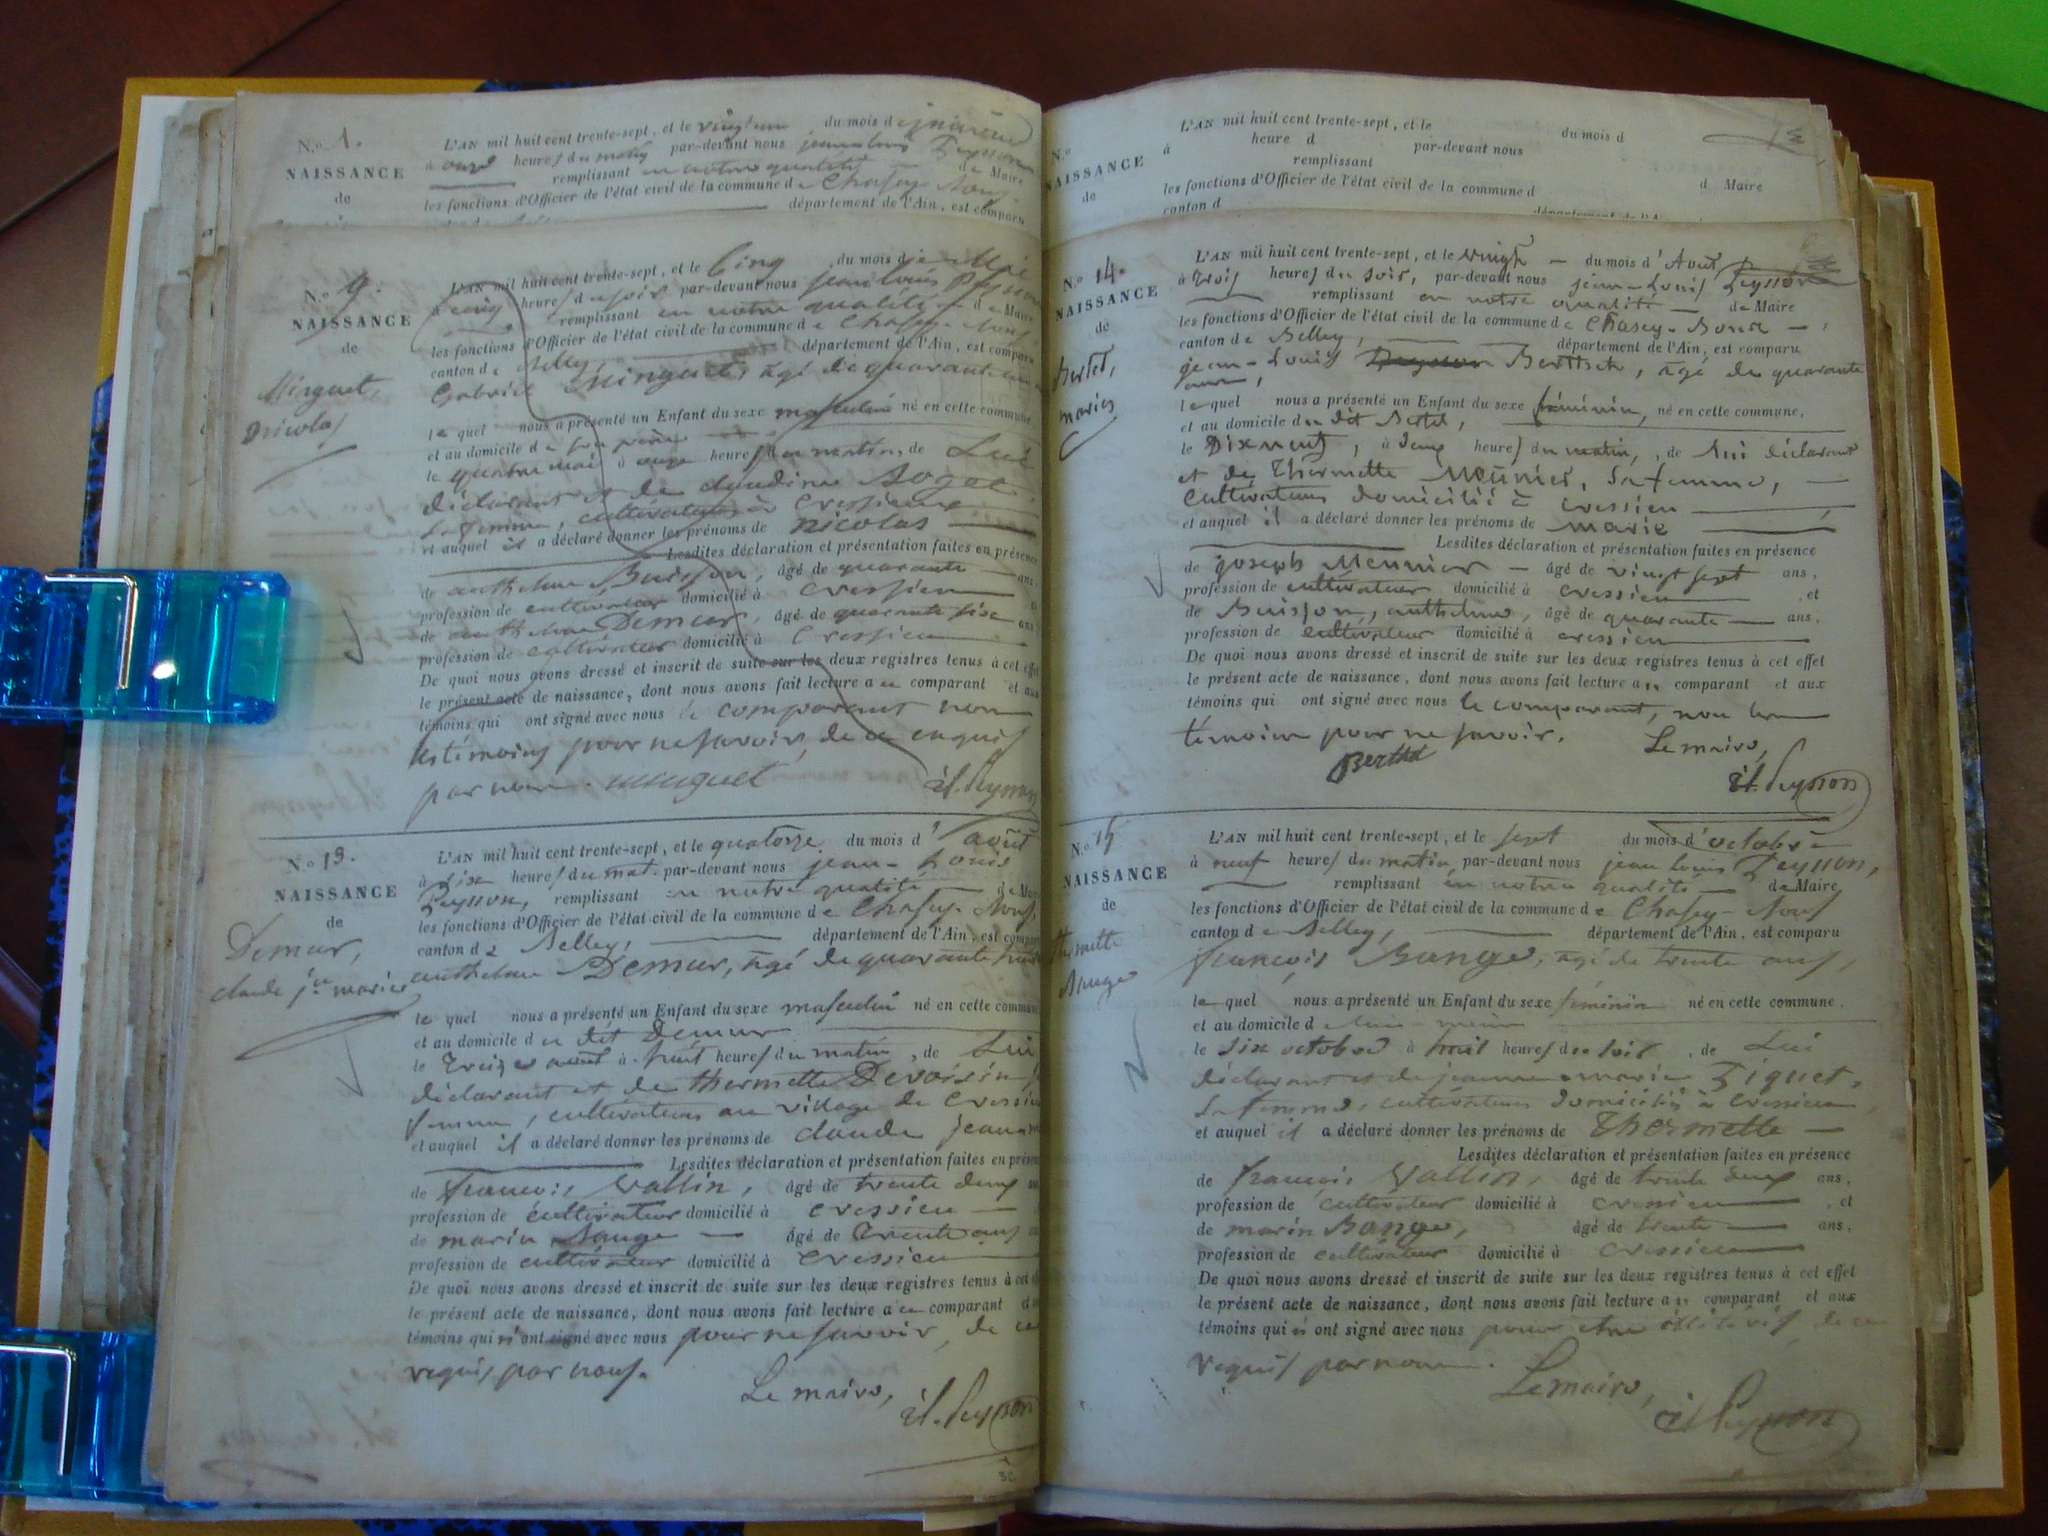 N.o 1.
NAISSANCE
de
L'AN mil huit cent trente-sept, et le vingt un du mois de
à onze heures du matin par-devant nous jean louis Peysson
remplissant en notre qualité de Maire
les fonctions d'Officier de l'état civil de la commune de Chasey-Bons
département de l'Ain, est comparu
N.o 9.
NAISSANCE
de
Minguet,
nicolas
L'AN mil huit cent trente-sept, et le Cinq du mois de Mai
à cinq heures du soir par-devant nous jean louis Peysson
remplissant en notre qualité de Maire
les fonctions d'Officier de l'état civil de la commune de Chasey-Bons
canton de Belley, département de l'Ain, est comparu
Gabriel Minguet, âgé de quarante
lequel nous a présenté un Enfant du sexe masculin né en cette commune
et au domicile de son père
le quatre mai à onze heures du matin, de Lui
déclarant et de claudine Boget,
sa femme, cultivateurs à Cressieux
et auquel il a déclaré donner les prénoms de nicolas
Lesdites déclaration et présentation faites en présence
de anthelme Buisson, âgé de quarante ans,
profession de cultivateur domicilié à Cressieu
de anthelme Demur, âgé de quarante six ans
profession de cultivateur domicilié à Cressieu
De quoi nous avons dressé et inscrit de suite sur les deux registres tenus à cet effet
le présent acte de naissance, dont nous avons fait lecture au comparant et aux
témoins qui ont signé avec nous le comparant non
les témoins pour ne savoir, de ce enquis
par nous. minguet jl. Peysson
N.o 13.
NAISSANCE
de
Demur,
claude jn marie
L'AN mil huit cent trente-sept, et le quatorze du mois d'août
à six heures du mat. par-devant nous jean-Louis
Peysson, remplissant en notre qualité de Maire
les fonctions d'Officier de l'état civil de la commune de Chasey-Bons
canton de Belley, département de l'Ain, est comparu
anthelme Demur, âgé de quarante
lequel nous a présenté un Enfant du sexe masculin né en cette commune
et au domicile du dit Demur
le Treize août à huit heures du matin, de Lui
déclarant et de thermette Devoisin sa
femme, cultivateurs au village de Cressieu
et auquel il a déclaré donner les prénoms de claude jean
Lesdites déclaration et présentation faites en présence
de françois Vallin, âgé de trente deux
profession de cultivateur domicilié à Cressieu
de marin Bange âgé de trente ans
profession de cultivateur domicilié à Cressieu
De quoi nous avons dressé et inscrit de suite sur les deux registres tenus à cet
le présent acte de naissance, dont nous avons fait lecture au comparant et
témoins qui n'ont signé avec nous pour ne savoir, de ce
requis par nous.
Le maire,
jl. Peysson
N.o
NAISSANCE
de
L'AN mil huit cent trente-sept, et le du mois d
à heure d par-devant nous
remplissant d Maire
les fonctions d'Officier de l'état civil de la commune d
canton d département de l'Ain
N.o 14.
NAISSANCE
de
Bertet,
marie
L'AN mil huit cent trente-sept, et le vingt du mois d'Août
à trois heures du soir, par-devant nous jean-Louis Peysson
remplissant en notre qualité de Maire
les fonctions d'Officier de l'état civil de la commune de Chasey-Bons
canton de Belley, département de l'Ain, est comparu
jean-Louis Berthet, âgé de quarante
ans,
lequel nous a présenté un Enfant du sexe féminin, né en cette commune,
et au domicile du dit Bertet,
le Dixneuf, à deux heures du matin, de lui déclarant
et de Thermette Meunier, sa femme,
cultivateurs domicilié à Cressieu
et auquel il a déclaré donner les prénoms de marie
Lesdites déclaration et présentation faites en présence
de joseph Meunier âgé de vingt sept ans,
profession de cultivateur domicilié à Cressieu et
de Buisson, anthelme, âgé de quarante ans,
profession de cultivateur domicilié à cressieu
De quoi nous avons dressé et inscrit de suite sur les deux registres tenus à cet effet
le présent acte de naissance, dont nous avons fait lecture au comparant et aux
témoins qui ont signé avec nous le comparant, non les
témoins pour ne savoir.
Berthet
Le maire,
jl. Peysson
N.o 15
NAISSANCE
de
thermette
Bange
L'AN mil huit cent trente-sept, et le sept du mois d'octobre
à neuf heures du matin, par-devant nous jean louis Peysson,
remplissant en notre qualité de Maire
les fonctions d'Officier de l'état civil de la commune de Chasey-Bons
canton de Belley, département de l'Ain, est comparu
françois Bange, âgé de trente ans,
lequel nous a présenté un Enfant du sexe féminin né en cette commune,
et au domicile de lui-même
le six octobre à huit heures du soir, de Lui
déclarant et de jeanne-marie Piguet,
sa femme, cultivateurs domiciliés à Cressieu,
et auquel il a déclaré donner les prénoms de Thermette
Lesdites déclaration et présentation faites en présence
de françois Vallin, âgé de trente deux ans,
profession de cultivateur domicilié à Cressieu, et
de marin Bange, âgé de trente ans,
profession de cultivateur domicilié à Cressieu
De quoi nous avons dressé et inscrit de suite sur les deux registres tenus à cet effet
le présent acte de naissance, dont nous avons fait lecture au comparant et aux
témoins qui n'ont signé avec nous pour être illitérés de ce
requis par nous.
Le maire,
jl Peysson